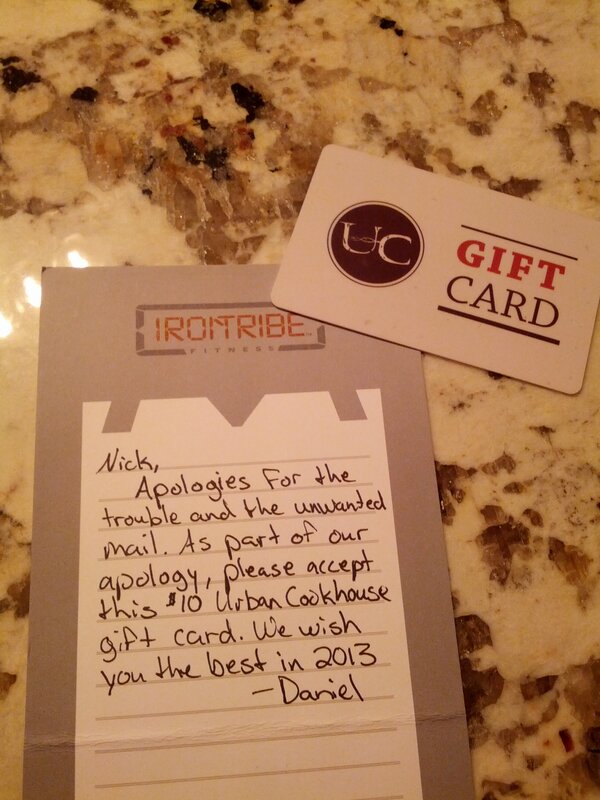 UC
GIFT
CARD
IRONTRIBE
FITNESS
Nick,
Apologies For the
trouble and the unwanted
mail. As part of our
apology, please accept
this $10 Urban Cookhouse
gift card. We wish
you the best in 2013
- Daniel